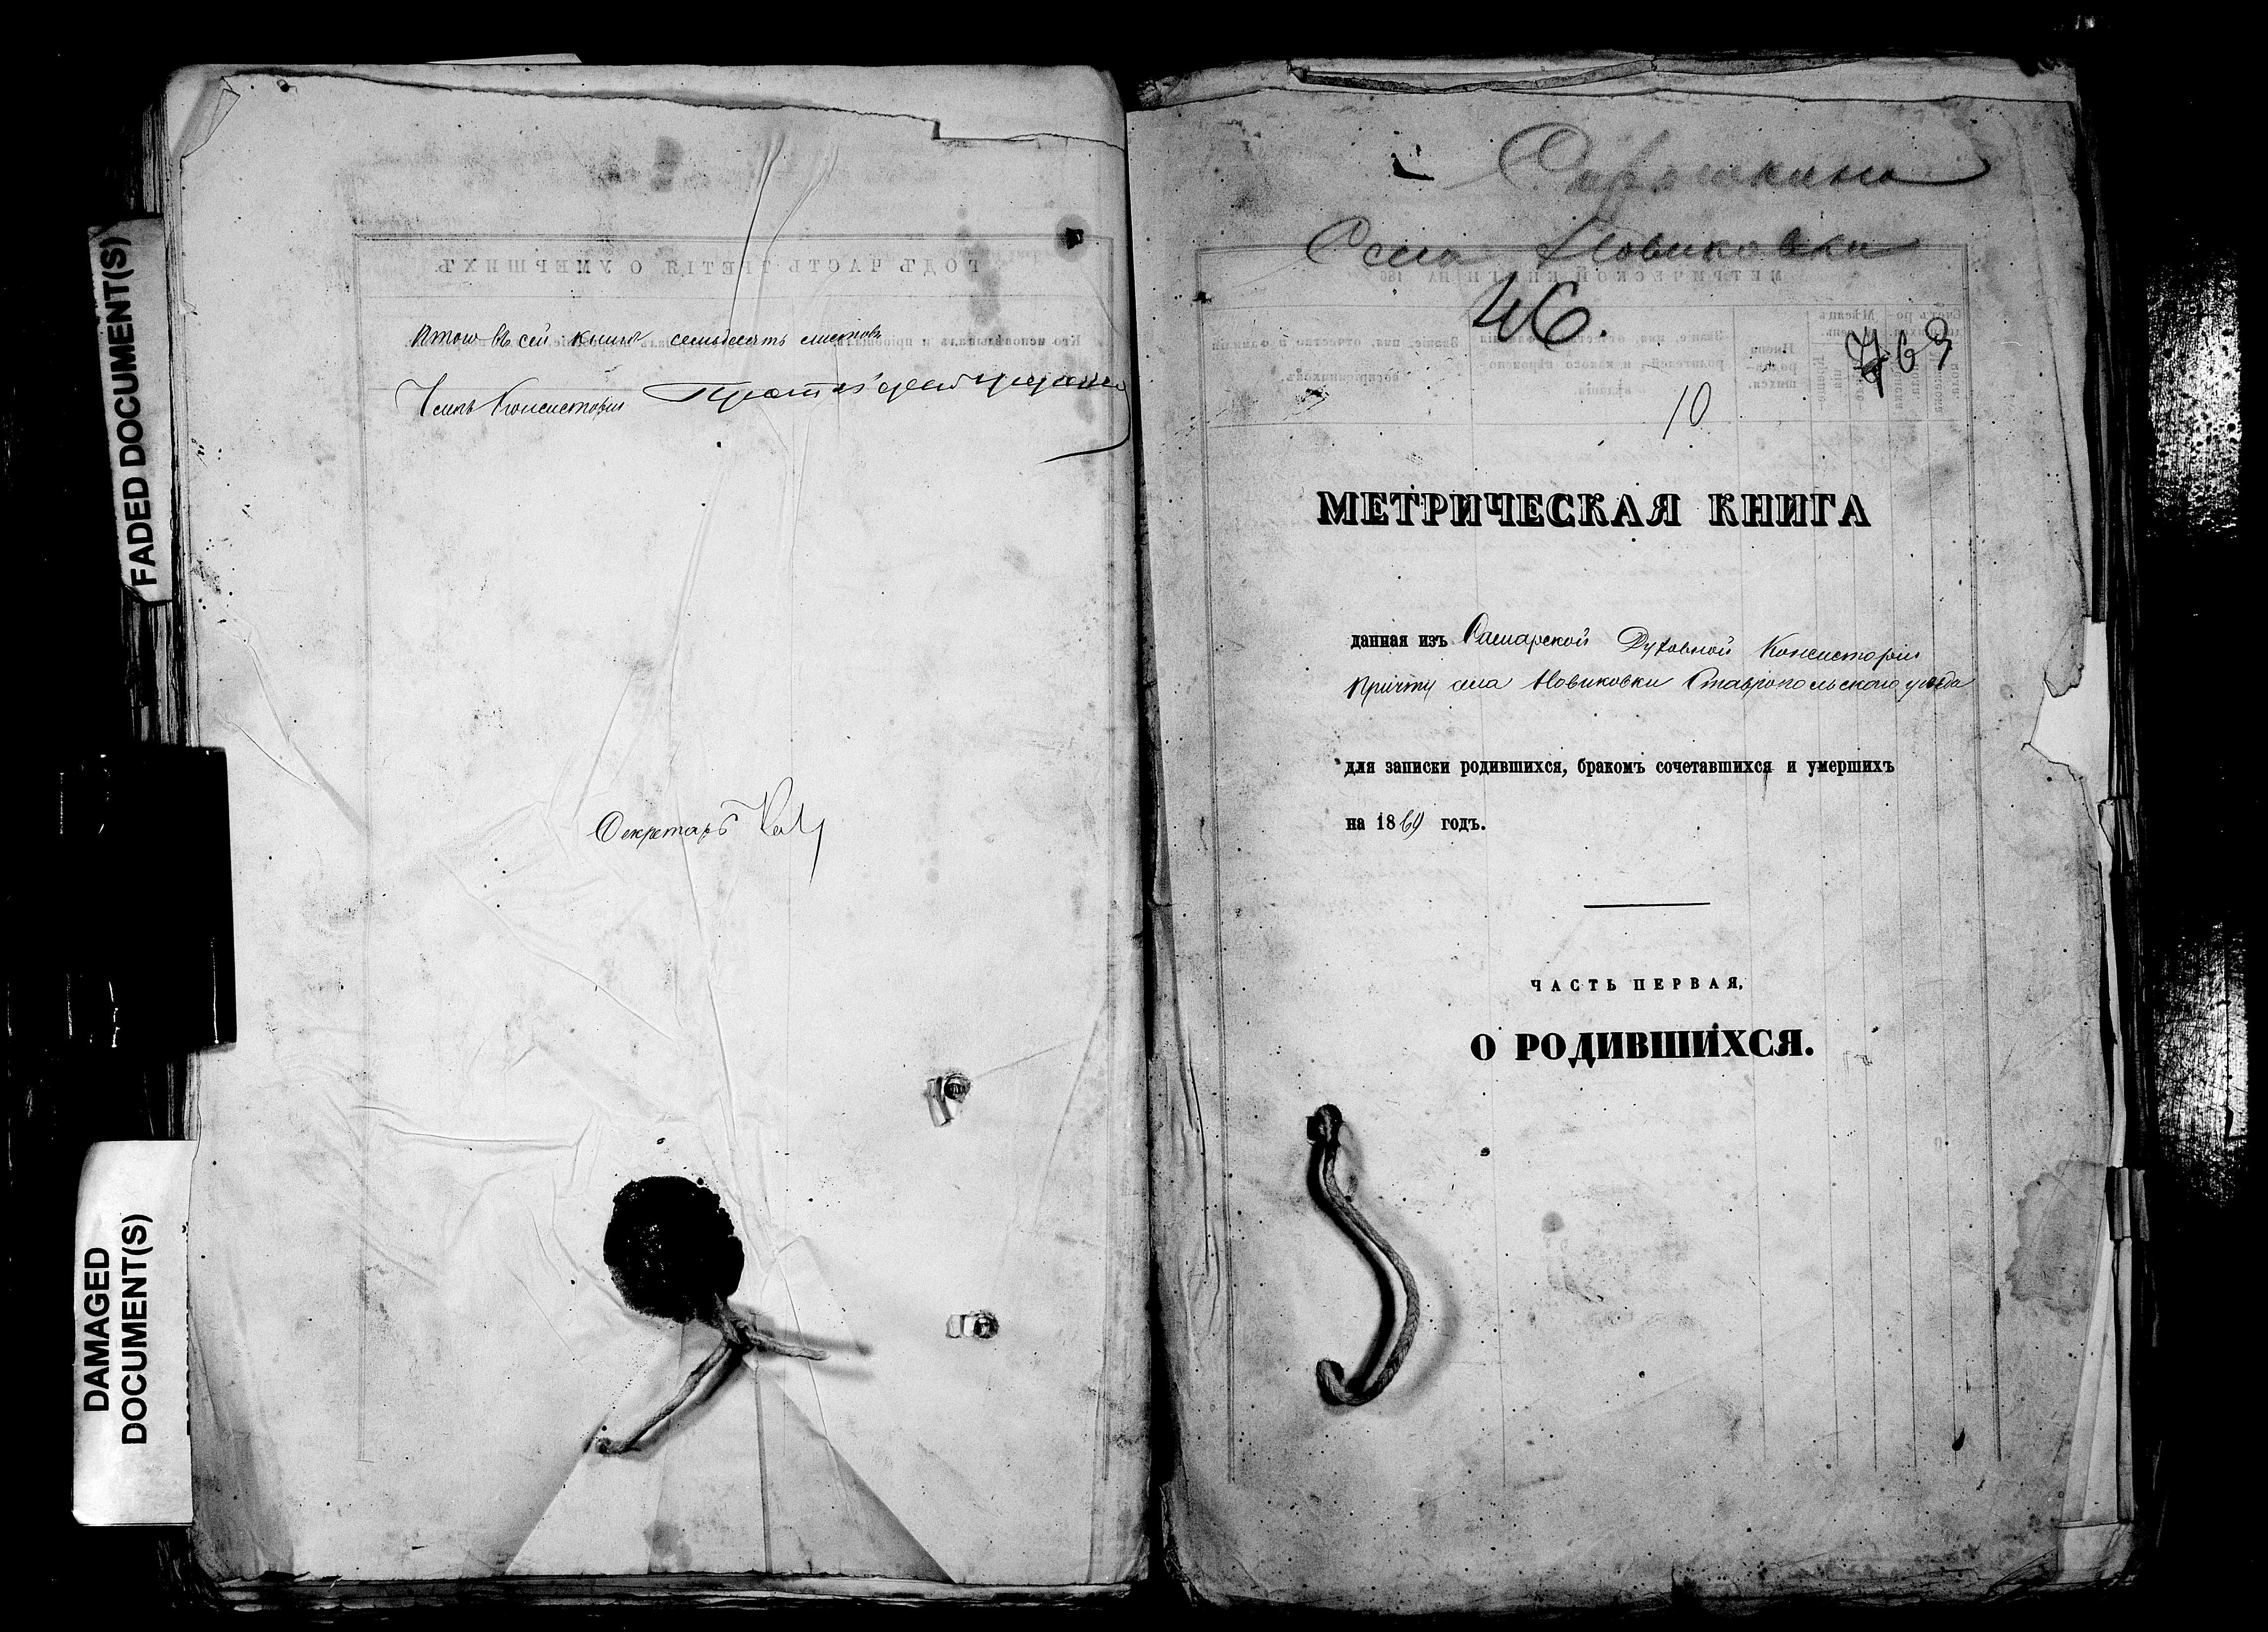 FADED DOCUMENT(S)
DAMAGED
DOCUMENT(S)
ГОДЪ ЧАСТЬ ТРЕТІЯ О УМЕРШИХЪ
Итого въ сей книгѣ семьдесятъ листовъ
Членъ Консисторіи
Секретарь
Села Новиковки
46.
769
10
МЕТРИЧЕСКАЯ КНИГА
данная изъ Самарской Духовной Консисторіи
Причту села Новиковки Ставропольского уѣзда
для записки родившихся, бракомъ сочетавшихся и умершихъ
на 1869 годъ.
ЧАСТЬ ПЕРВАЯ,
О РОДИВШИХСЯ.